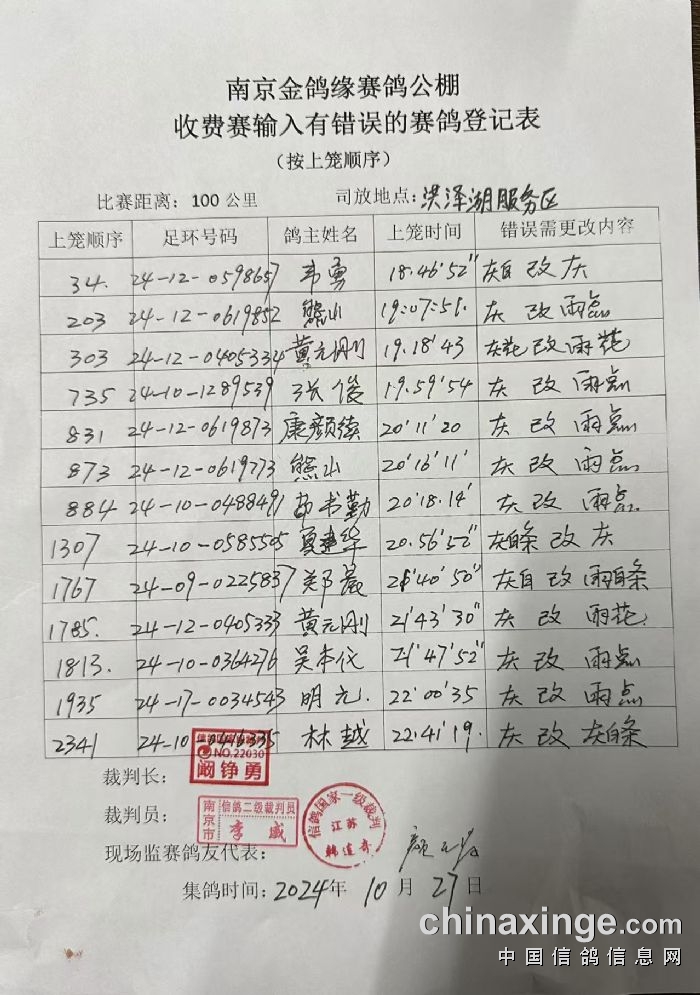 南京金鸽缘赛鸽公棚
收费赛输入有错误的赛鸽登记表
（按上笼顺序）
比赛距离：100公里 司放地点：洪泽湖服务区
上笼顺序 足环号码 鸽主姓名 上笼时间 错误需更改内容
34. 24-12-0598657 韦勇 18.46'52" 灰自 改 灰
203 24-12-0619852 熊山 19:07:51. 灰 改 雨点
303 24-12-0405334 黄元刚 19.18'43 灰花 改 雨花
735 24-10-1289539 张俊 19.59'54 灰 改 雨点
831 24-12-0619873 康颜续 20'11'20 灰 改 雨点
873 24-12-0619773 熊山 20'16'11' 灰 改 雨点
884 24-10-0488491 书勤 20'18.14' 灰 改 雨点
1307 24-10-0585505 夏建华 20.56'52" 灰白条 改 灰
1767 24-09-0225837 郑晨 21'40'50" 灰白 改 雨白条
1785. 24-12-0405333 黄元刚 21'43'30" 灰 改 雨花
1813. 24-10-0364276 吴本 21'47'52" 灰 改 雨点
1935 24-17-0034543 明元. 22'00'35 灰 改 雨点
2341 24-10- 335 林越 22:41'19. 灰 改 灰白条
NO.22030
阚铮勇
裁判长：
裁判员：
南京市 信鸽二级裁判员 李威
信鸽国家一级裁判 江苏 韩道奇
现场监赛鸽友代表： 颜
集鸽时间：2024年 10月27日
chinaxinge.com
中国信鸽信息网